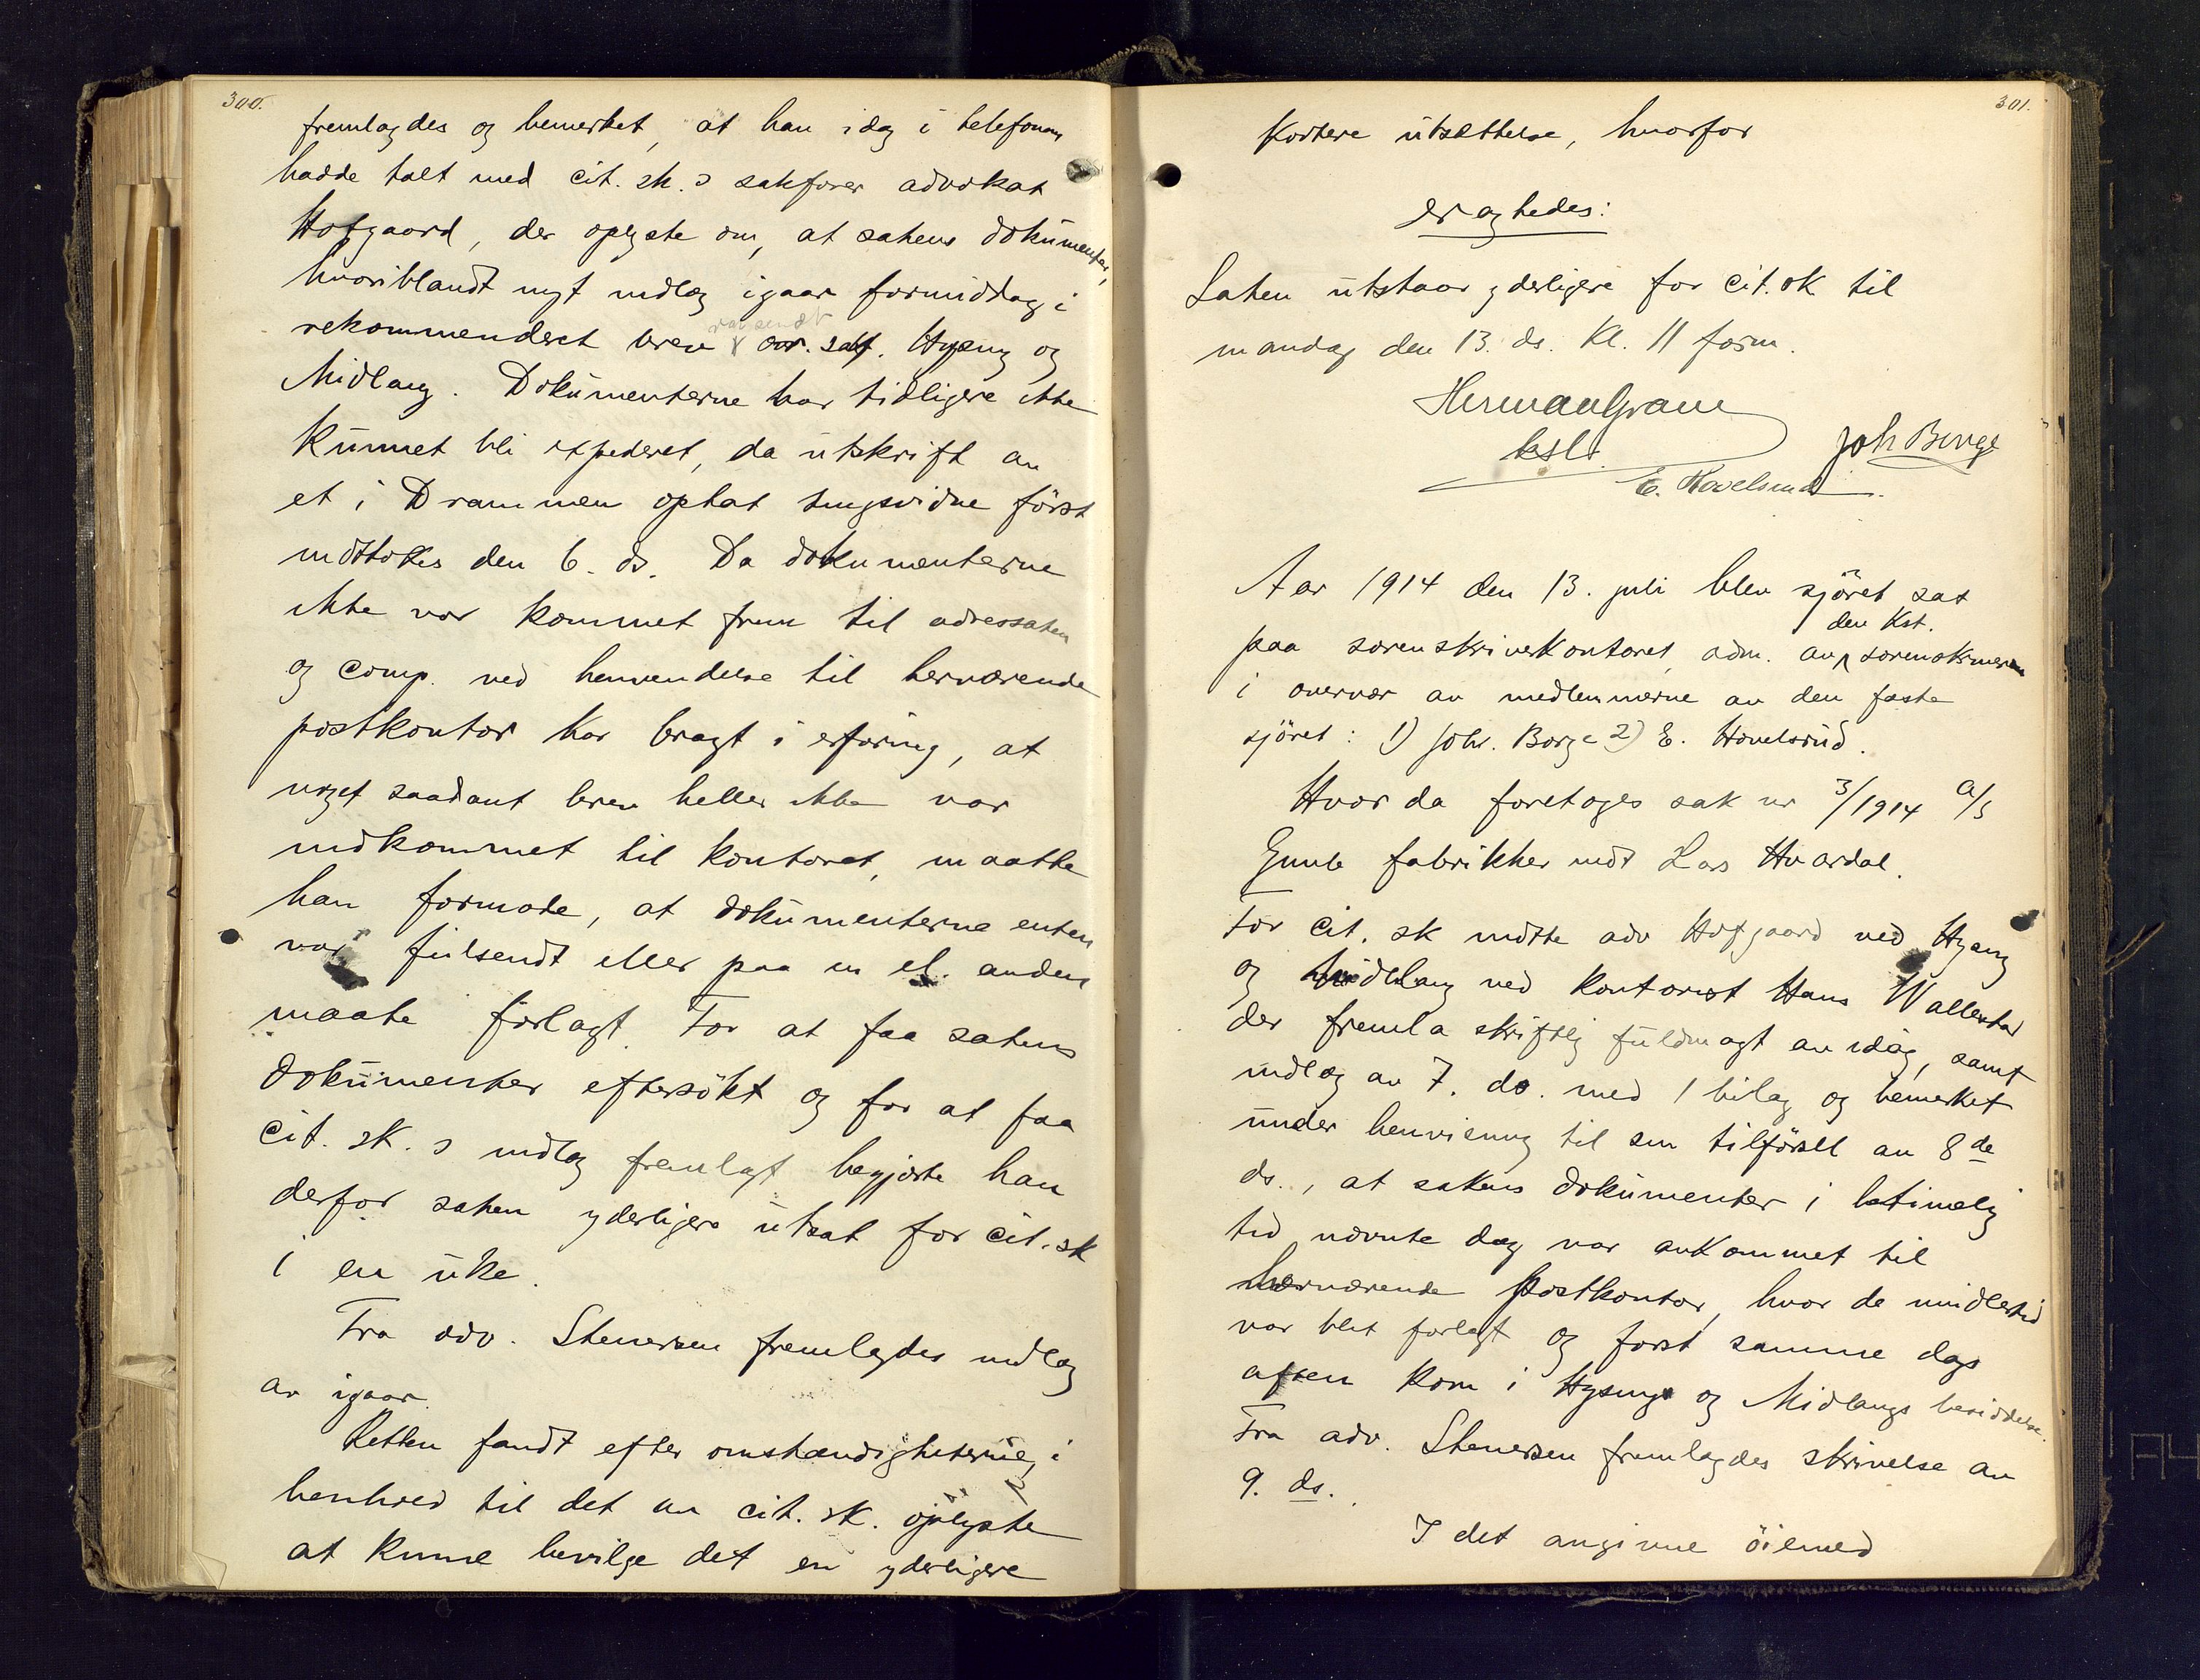 300.
fremlagdes og bemerket, at han idag i telefonen
hadde talt med cit. sk.s sakfører advokat
Hofgaard, der oplyste om, at sakens dokumenter,
hvoriblandt nyt indlæg igaar formiddag i
var sendt
rekommendert brev osr. sakf. Hysing og
Midlang. Dokumenterne har tidligere ikke
kunnet bli expederet, da utskrift av
et i Drammen optat tingsvidne först
indtokes den 6. ds. Da dokumenterne
ikke var kommet frem til adressaten
og comp. ved henvendelse til herværende
postkontor har bragt i erfaring, at
noget saadant brev heller ikke var
indkommet til kontoret, maatte
han formode, at dokumenterne enten
var feilsendt eller paa en el. anden
maate forlagt. For at faa sakens
dokumenter eftersökt og for at faa
cit. sk.s indlæg fremlagt begjærte han
derfor saken yderligere utsat for cit. sk
i en uke.
Fra adv. Stenersen fremlagdes indlæg
av igaar.
Retten fandt efter omstændigheterne, i
henhold til det av cit. sk. oplyste
at kunne bevilge det en yderligere
301.
kortere utsættelse, hvorfor
eragtedes:
Saken utstaar yderligere for cit. sk til
mandag den 13. ds. kl. 11 form.
Herman Grane
kst.
Joh Berge
E. Hovelsrud
Aar 1914 den 13. juli blev sjöret sat
den kst.
paa sorenskriverkontoret, adm. av sorenskriveren
i overvær av medlemmerne av den faste
sjöret: 1) Joh. Borge 2) E. Hovelsrud.
Hvor da foretoges sak nr 3/1914 a/s
Gunle fabrikker mot Lars Hvardal.
For cit. sk mötte adv Hofgaard ved Hysing
og Midlang ved kontorist Hans Wallestad
der fremla skriftlig fuldmagt av idag, samt
indlæg av 7. ds. med 1 bilag og bemerket
under henvisning til sin tilförsel av 8de
ds., at sakens dokumenter i betimelig
tid nævnte dag var ankommet til
herværende postkontor, hvor de imidlertid
var blit forlagt og först samme dags
aften kom i Hysings og Midlangs besiddelse.
Fra adv. Stenersen fremlagdes skrivelse av
9. ds.
I det angivne öiemed